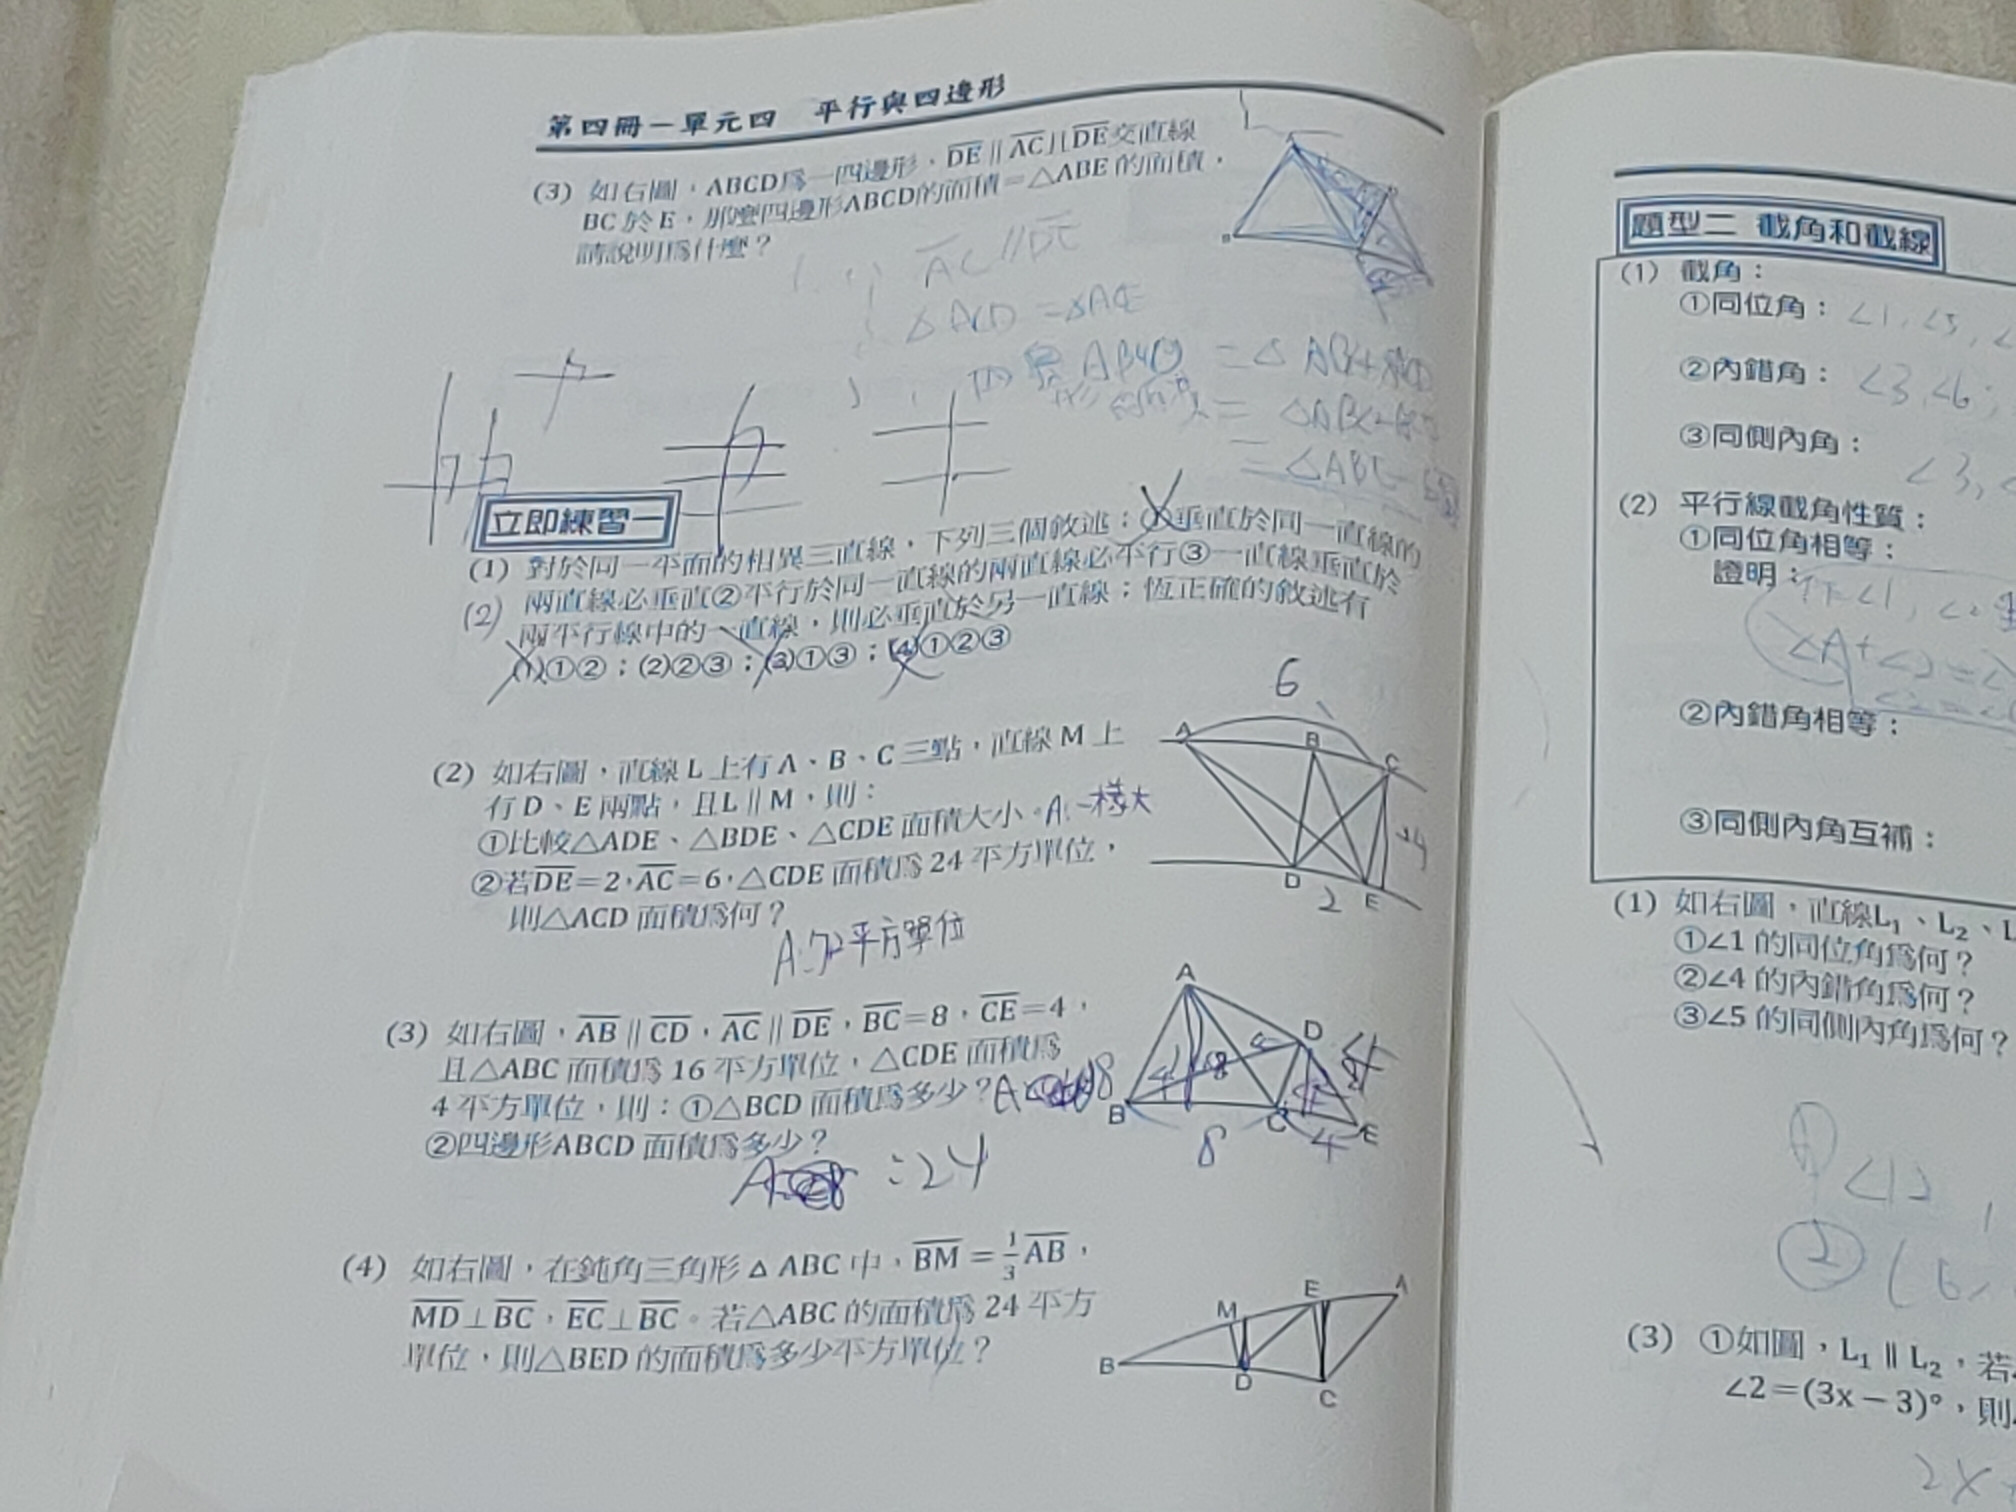 第四冊－單元四 平行與四邊形
(3) 如右圖，ABCD為一四邊形，DE∥AC且DE交直線
BC於E，那麼四邊形ABCD的面積＝△ABE的面積，
請說明為什麼？
AC∥DE
△ACD＝△ACE
立即練習一
(1) 對於同一平面的相異三直線，下列三個敘述：①垂直於同一直線的
兩直線必垂直②平行於同一直線的兩直線必平行③一直線垂直於
(2) 兩平行線中的一直線，則必垂直於另一直線；恆正確的敘述有
(1)①②；(2)②③；(3)①③；(4)①②③
6
(2) 如右圖，直線 L 上有 A、B、C 三點，直線 M 上
有 D、E 兩點，且L∥M，則：
①比較△ADE、△BDE、△CDE 面積大小。A:一樣大
②若DE＝2，AC＝6，△CDE 面積為 24 平方單位，
則△ACD 面積為何？
A:72平方單位
A B C
24
D 2 E
(3) 如右圖，AB∥CD，AC∥DE，BC＝8，CE＝4，
且△ABC 面積為 16 平方單位，△CDE 面積為
4 平方單位，則：①△BCD 面積為多少？A 8
②四邊形ABCD 面積為多少？
A :24
A D
B C E
8 4
(4) 如右圖，在鈍角三角形△ABC 中，BM＝1/3 AB，
MD⊥BC，EC⊥BC。若△ABC 的面積為 24 平方
單位，則△BED 的面積為多少平方單位？
M E A
B D C
題型二 截角和截線
(1) 截角：
①同位角：∠1,∠5,
②內錯角：∠3,∠6;
③同側內角：
∠3,
(2) 平行線截角性質：
①同位角相等：
證明：
②內錯角相等：
③同側內角互補：
(1) 如右圖，直線L₁、L₂、L
①∠1 的同位角為何？
②∠4 的內錯角為何？
③∠5 的同側內角為何？
(3) ①如圖，L₁∥L₂，若
∠2＝(3x－3)°，則